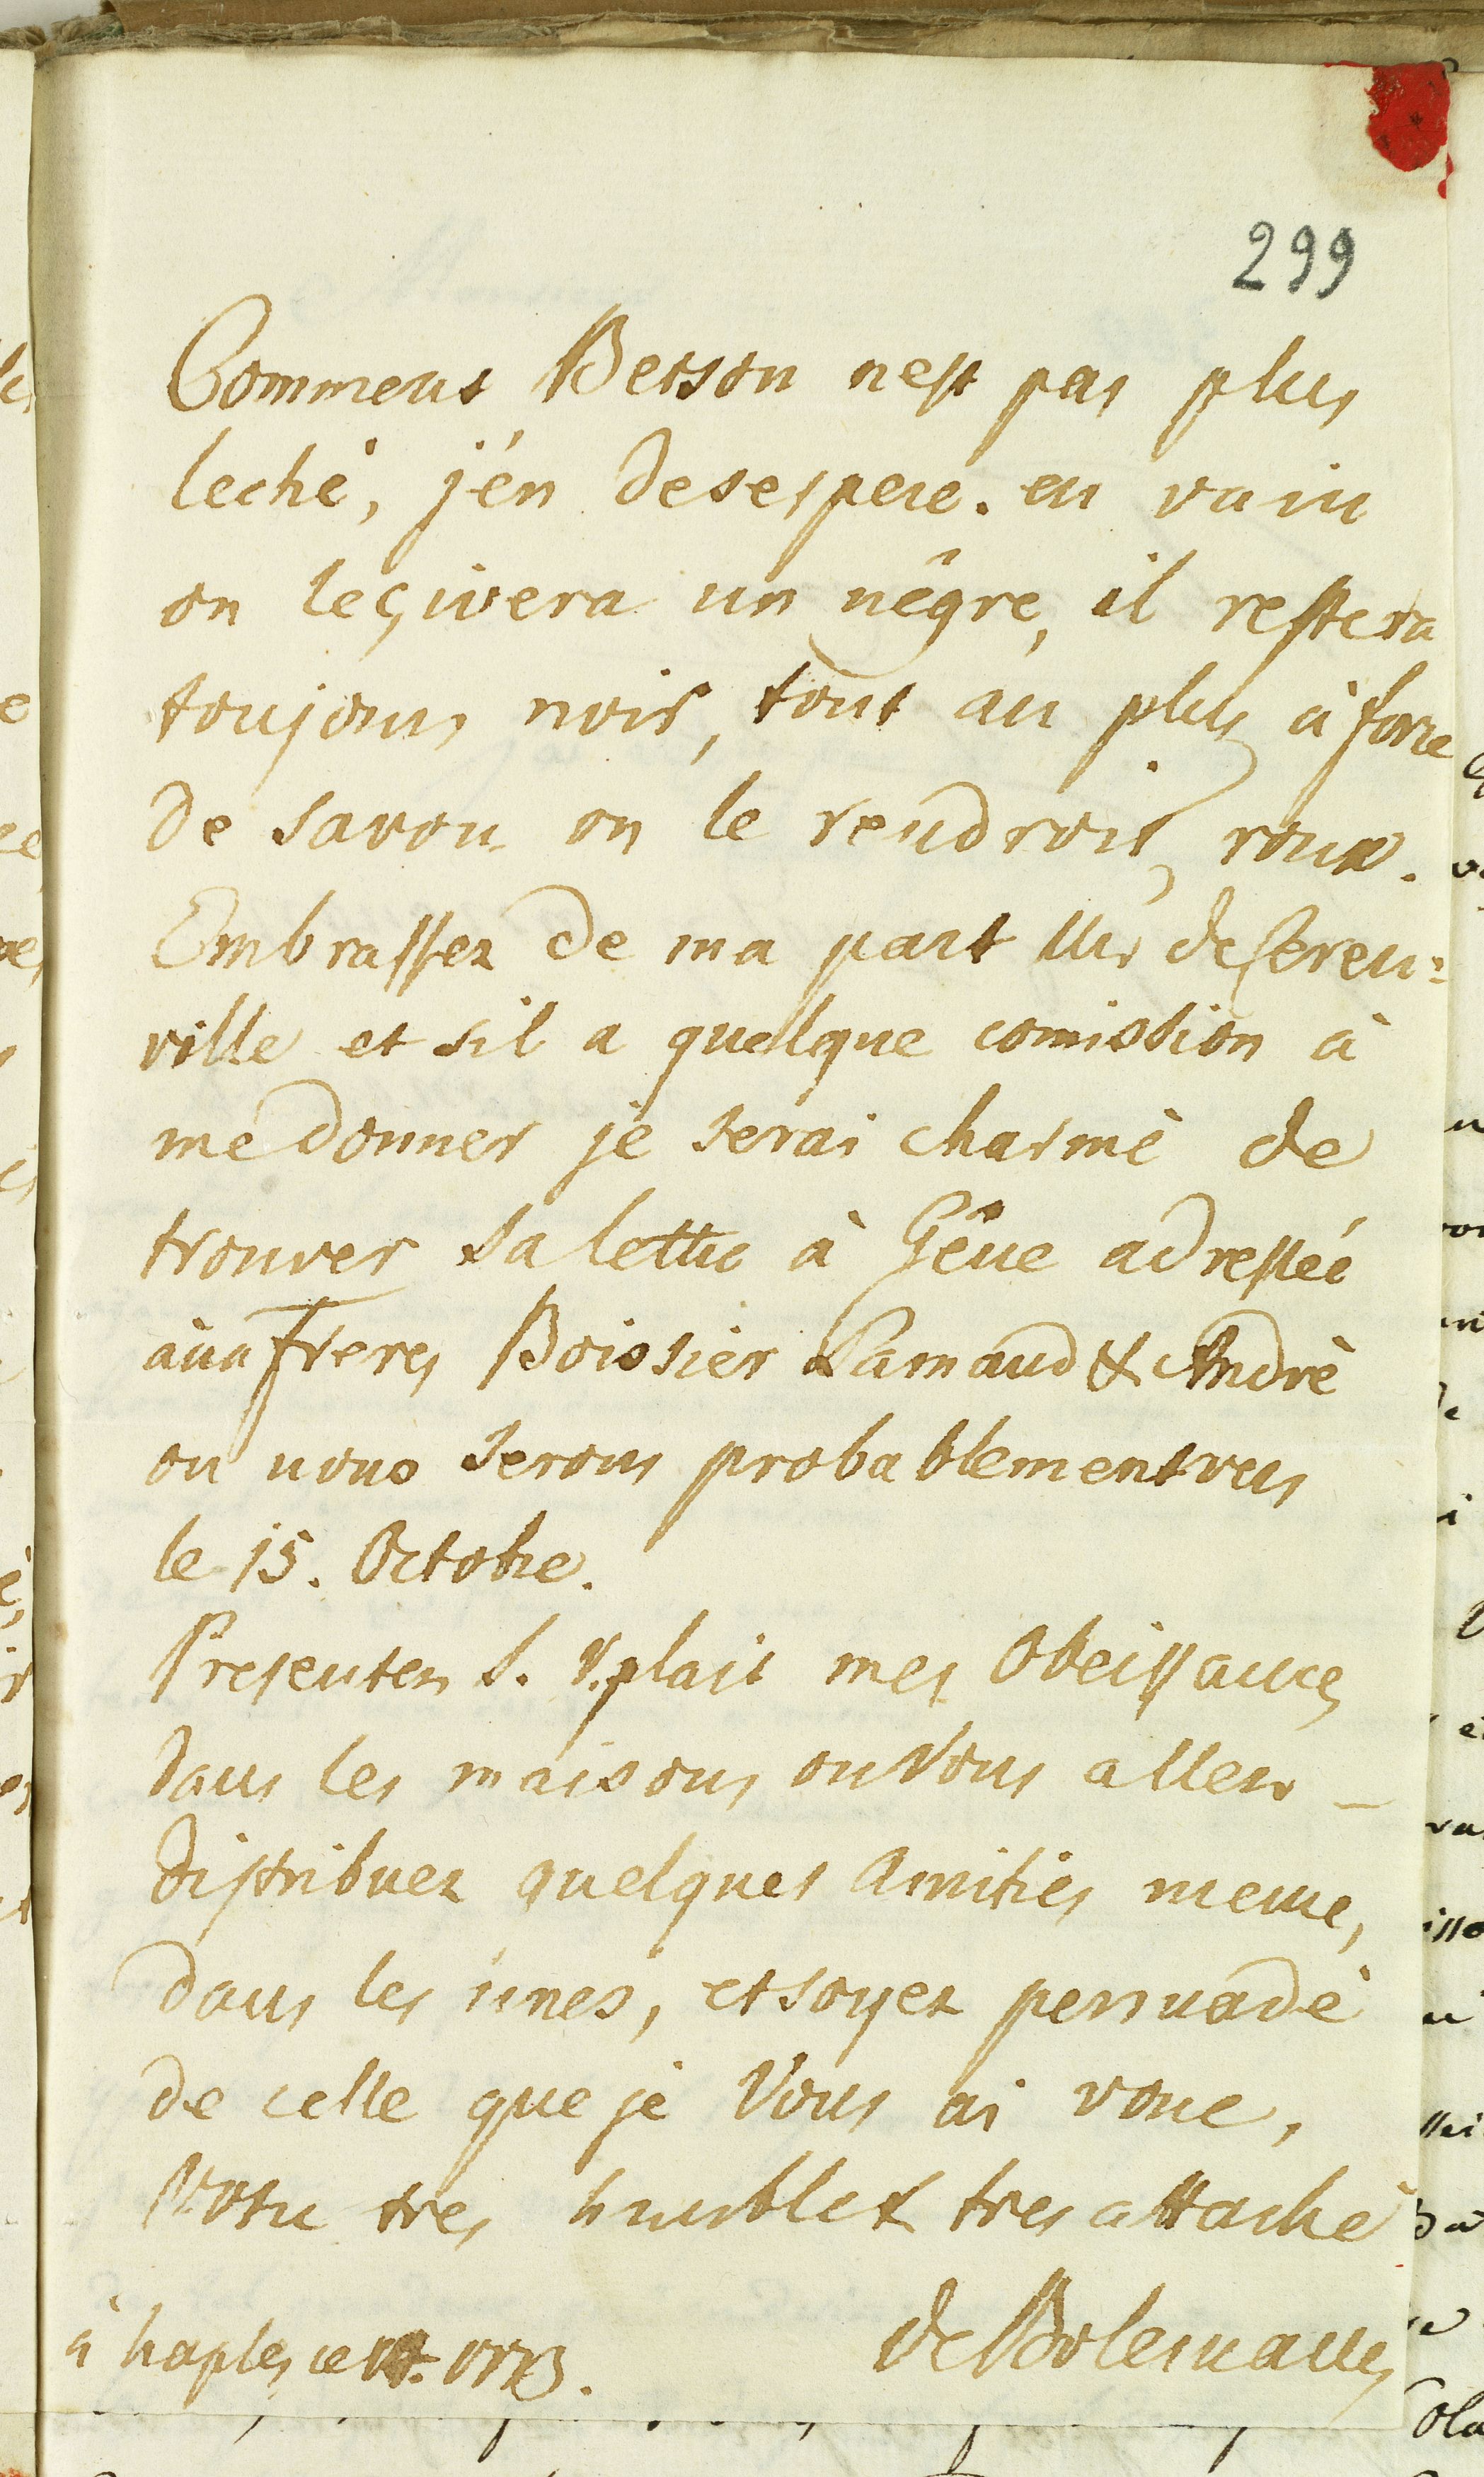 299
Comment Berson nest pas plus
leché, j'én desespere. en vain
on leçivera un négre, il restera
toujours noir, tout au plus à force
de savon on le rendroit roux.
Embrassez de ma part Mr deseren=
ville et sil a quelque comission à
me donner je serai charmé de
trouver sa lettre à Gêne adressée
aux Freres Boissier Ramaud & André
ou nous serons probablement vers
le 15. Octobre.
Presentez S. V. plait mes Obeissances
dans les maisons ou Vous allez
distribuez quelques Amitiés meme,
dans les unes, et soyez persuadé
de celle que je Vous ai voué,
Votre tres humble & tres attaché
de
à Naples ce